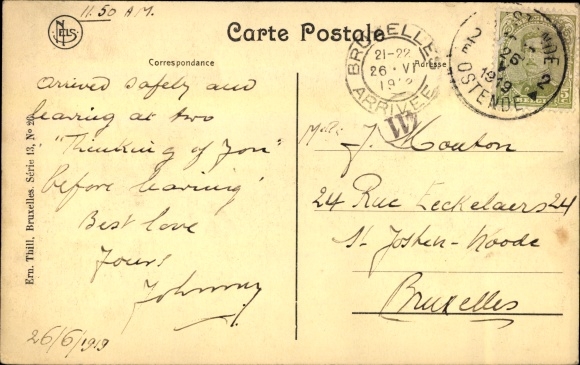 11.50 A.M.
NELS
Carte Postale
Correspondance
Adresse
BRUXELLES
21-22
26 · VI
1919
ARRIVEE
W
OSTENDE 2
1919
OSTENDE
2E
arrived safely and
leaving at two
"Thinking of You"
before leaving
Best love
Yours
Johnny
26/6/1919
J. Mouton
24 Rue Eeckelaers 24
St Josten-Noode
Bruxelles
Ern. Thill, Bruxelles. Série 13, No